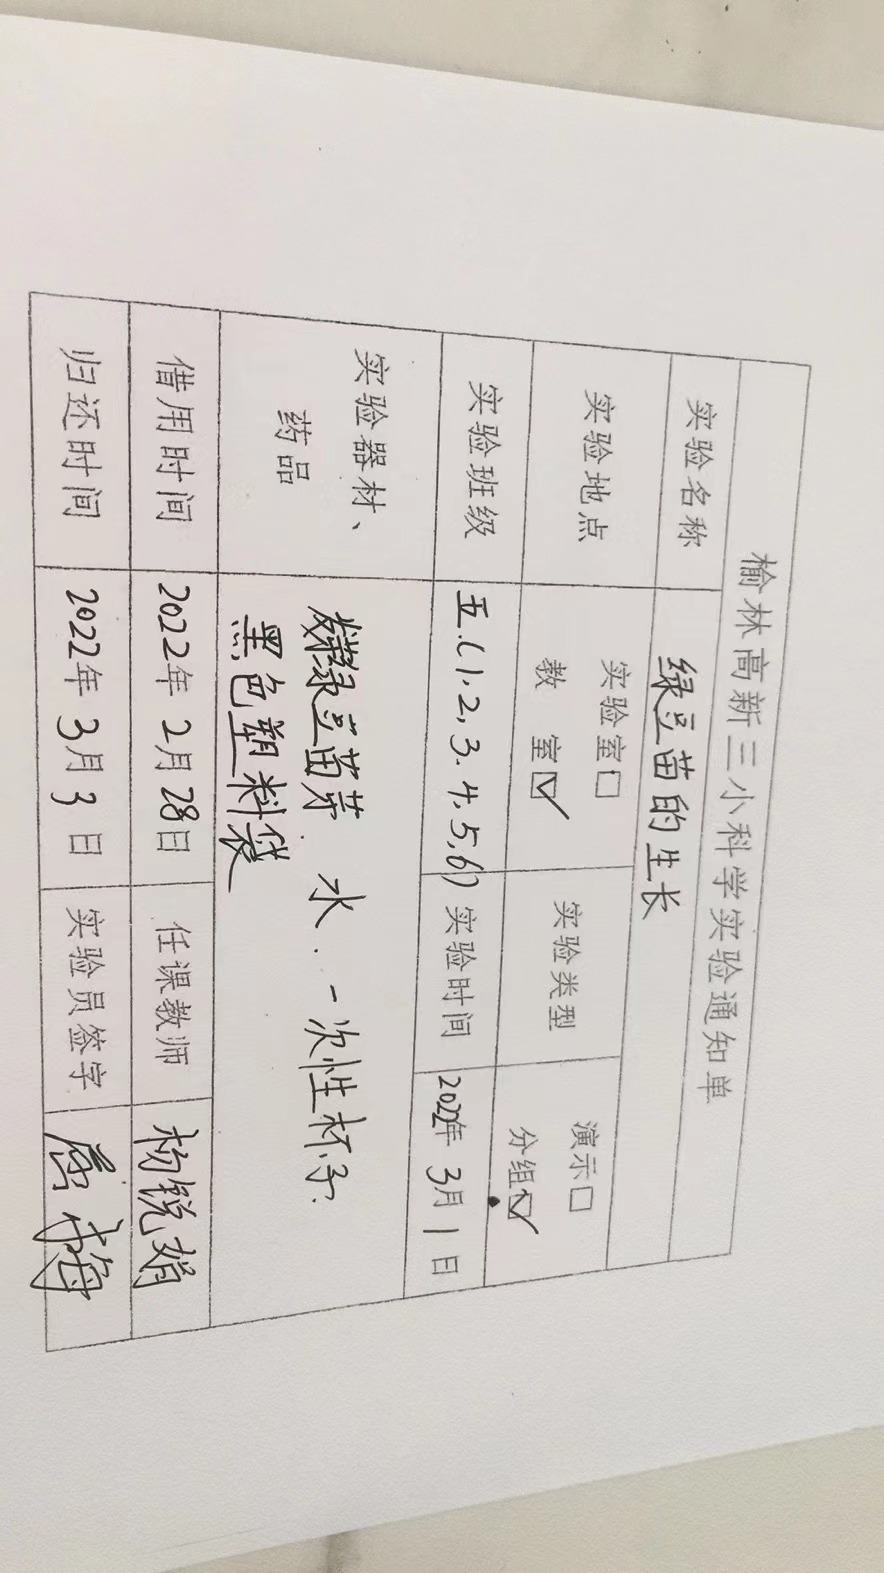 榆林高新三小科学实验通知单
实验名称 绿豆苗的生长
实验地点 实验室□ 教 室☑ 实验类型 演示□ 分组☑
实验班级 五.(1.2,3.4,5,6) 实验时间 2022年3月1日
实验器材、
药品
绿豆苗芽 水. 一次性杯子.
黑色塑料袋
借用时间 2022年2月28日 任课教师 杨锐娟
归还时间 2022年3月3日 实验员签字